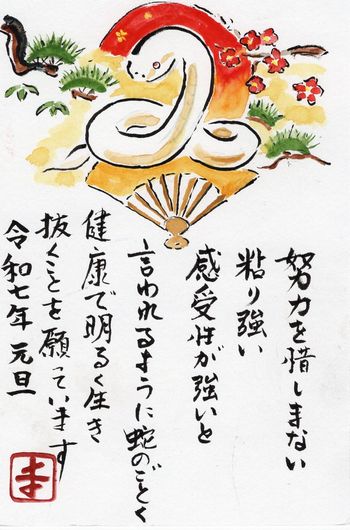 努力を惜しまない
粘り強い
感受性が強いと
言われるように蛇のごとく
健康で明るく生き
抜くことを願っています
令和七年 元旦